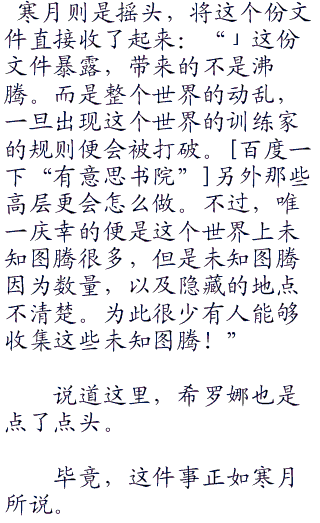 寒月则是摇头，将这个份文
件直接收了起来：“」这份
文件暴露，带来的不是沸
腾。而是整个世界的动乱，
一旦出现这个世界的训练家
的规则便会被打破。[百度一
下“有意思书院”]另外那些
高层更会怎么做。不过，唯
一庆幸的便是这个世界上未
知图腾很多，但是未知图腾
因为数量，以及隐藏的地点
不清楚。为此很少有人能够
收集这些未知图腾！”
说道这里，希罗娜也是
点了点头。
毕竟，这件事正如寒月
所说。